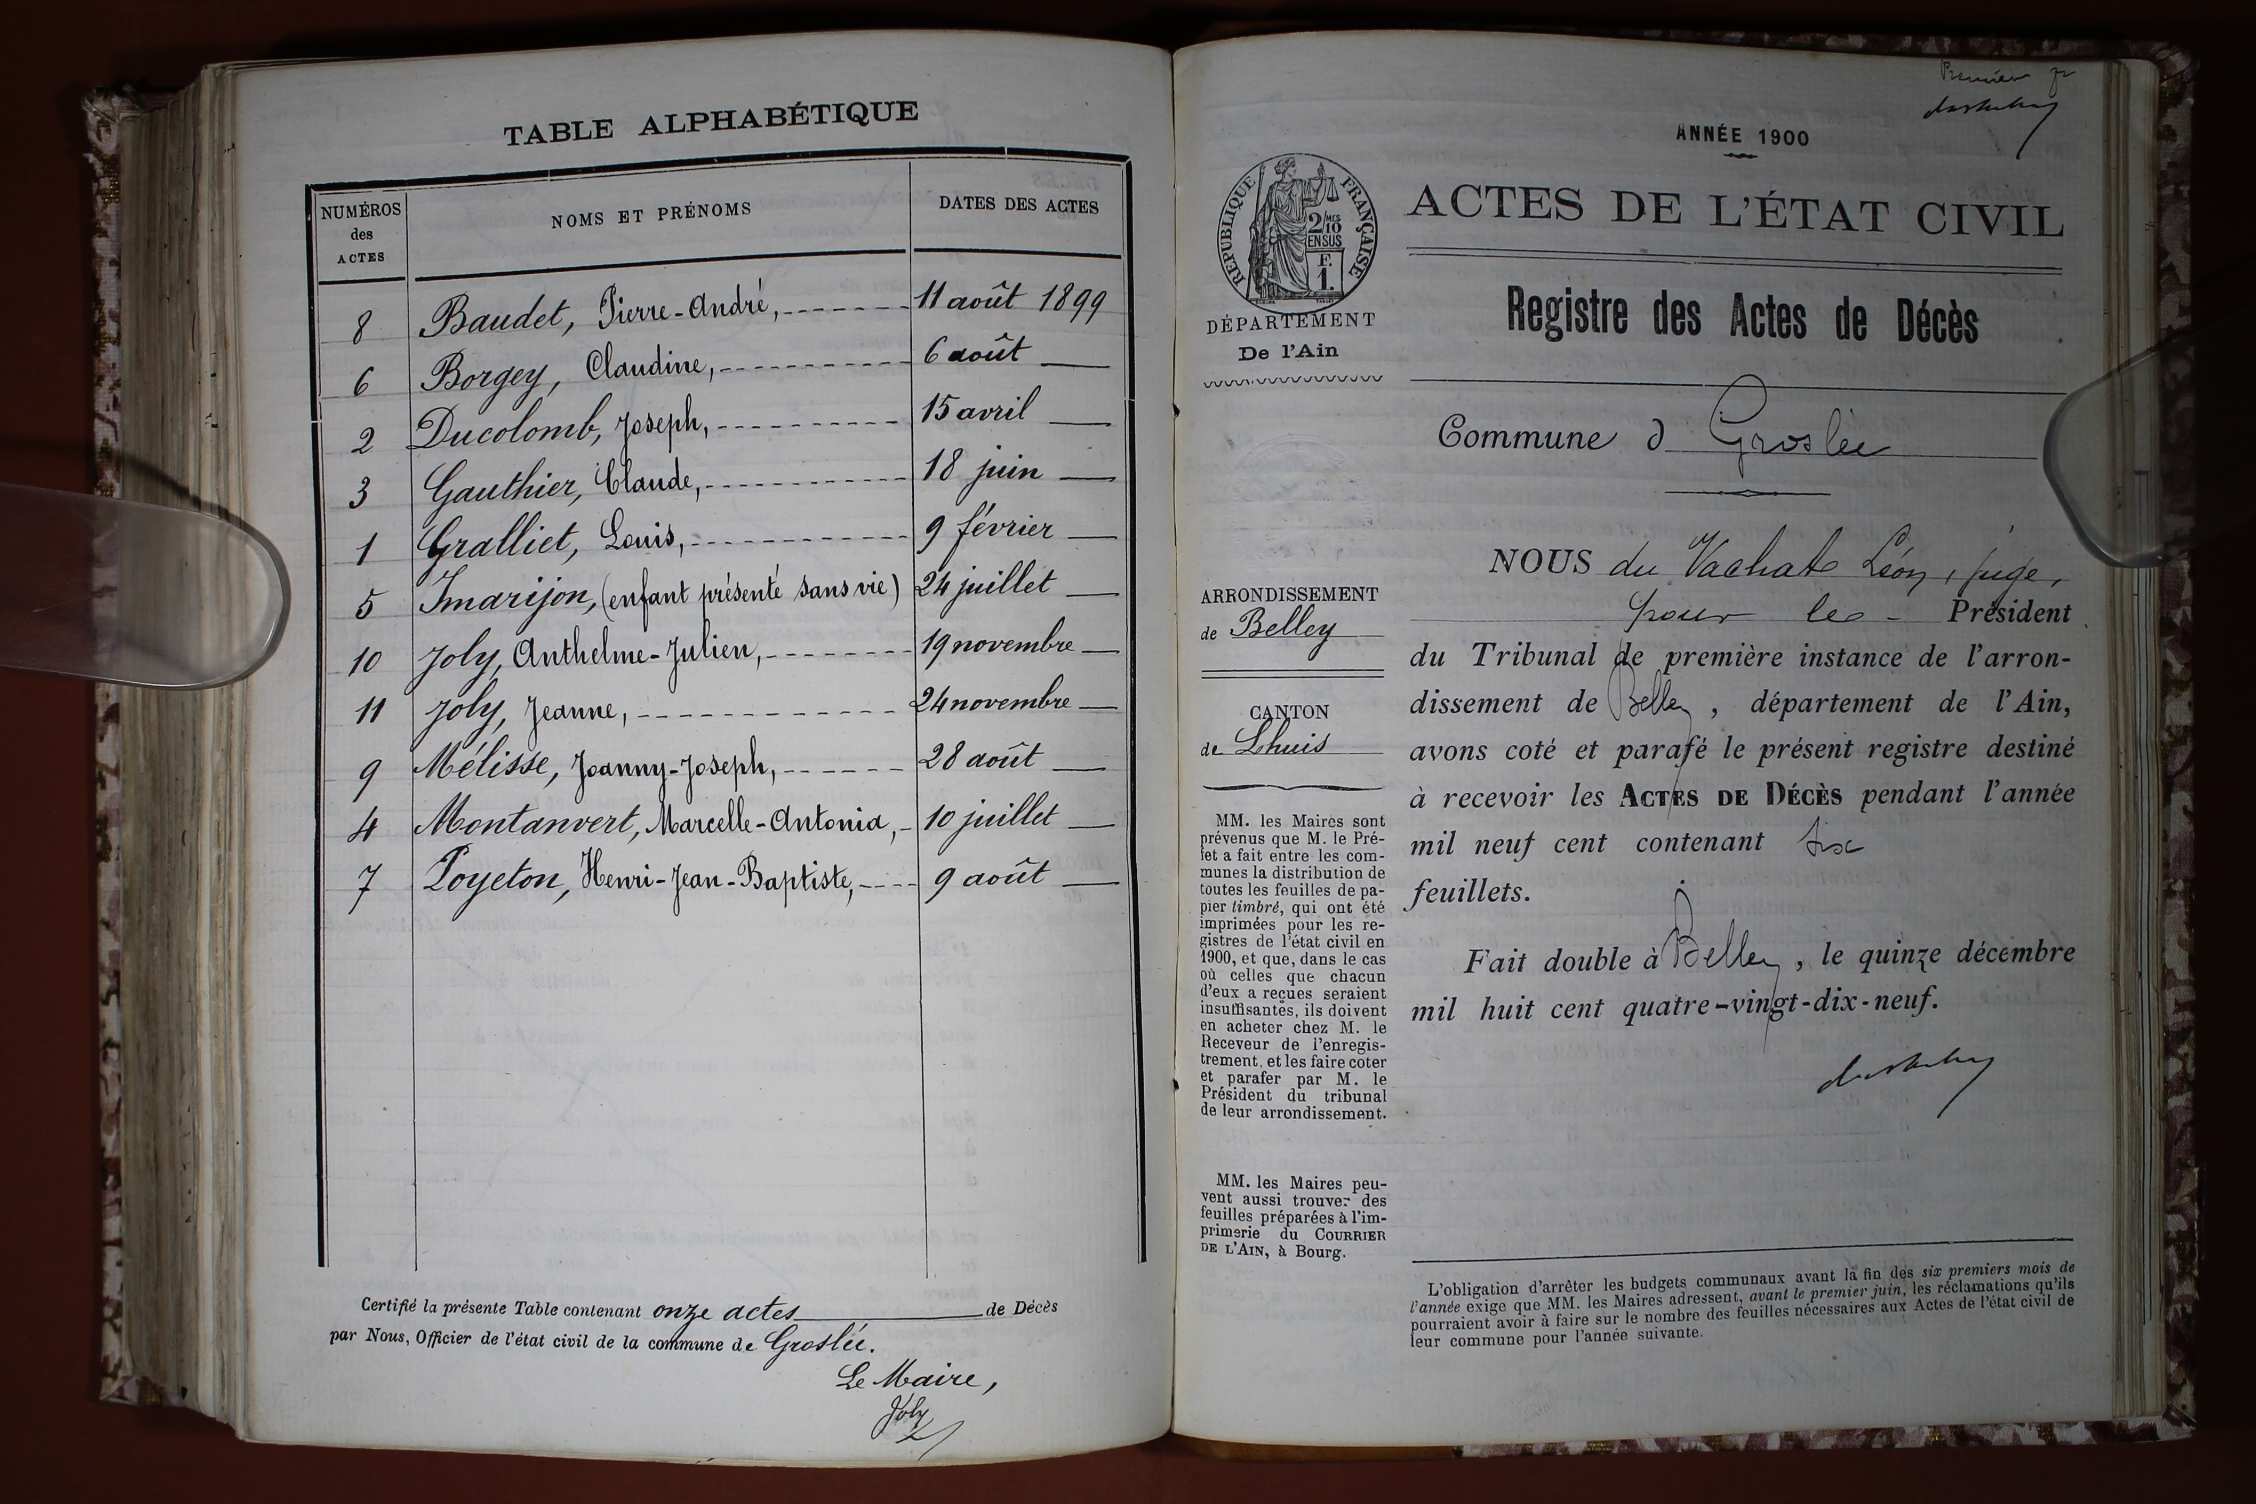 TABLE ALPHABÉTIQUE
NUMÉROS
des
ACTES
NOMS ET PRÉNOMS
DATES DES ACTES
8 Baudet, Pierre-André, 11 août 1899
6 Borgey, Claudine, 6 août
2 Ducolomb, Joseph, 15 avril
3 Gauthier, Claude, 18 juin
1 Gralliet, Louis, 9 février
5 Jmarijon, (enfant présenté sans vie) 24 juillet
10 Joly, Anthelme-Julien, 19 novembre
11 Joly, Jeanne, 24 novembre
9 Mélisse, Joanny-Joseph, 28 août
4 Montanvert, Marcelle-Antonia, 10 juillet
7 Poyeton, Henri-Jean-Baptiste, 9 août
Certifié la présente Table contenant onze actes de Décès
par Nous, Officier de l'état civil de la commune de Groslée.
Le Maire,
Joly
Premier
ANNÉE 1900
RÉPUBLIQUE FRANÇAISE
2/10 MES
EN SUS
F.
1.
DÉPARTEMENT
De l'Ain
ARRONDISSEMENT
de Belley
CANTON
de Lhuis
MM. les Maires sont
prévenus que M. le Pré-
fet a fait entre les com-
munes la distribution de
toutes les feuilles de pa-
pier timbré, qui ont été
imprimées pour les re-
gistres de l'état civil en
1900, et que, dans le cas
où celles que chacun
d'eux a reçues seraient
insuffisantes, ils doivent
en acheter chez M. le
Receveur de l'enregis-
trement, et les faire coter
et parafer par M. le
Président du tribunal
de leur arrondissement.
MM. les Maires peu-
vent aussi trouver des
feuilles préparées à l'im-
primerie du COURRIER
DE L'AIN, à Bourg.
ACTES DE L'ÉTAT CIVIL
Registre des Actes de Décès
Commune d Groslée
NOUS du Vachat Léon, juge,
pour le Président
du Tribunal de première instance de l'arron-
dissement de Belley, département de l'Ain,
avons coté et parafé le présent registre destiné
à recevoir les ACTES DE DÉCÈS pendant l'année
mil neuf cent contenant six
feuillets.
Fait double à Belley, le quinze décembre
mil huit cent quatre-vingt-dix-neuf.
L'obligation d'arrêter les budgets communaux avant la fin des six premiers mois de
l'année exige que MM. les Maires adressent, avant le premier juin, les réclamations qu'ils
pourraient avoir à faire sur le nombre des feuilles nécessaires aux Actes de l'état civil de
leur commune pour l'année suivante.